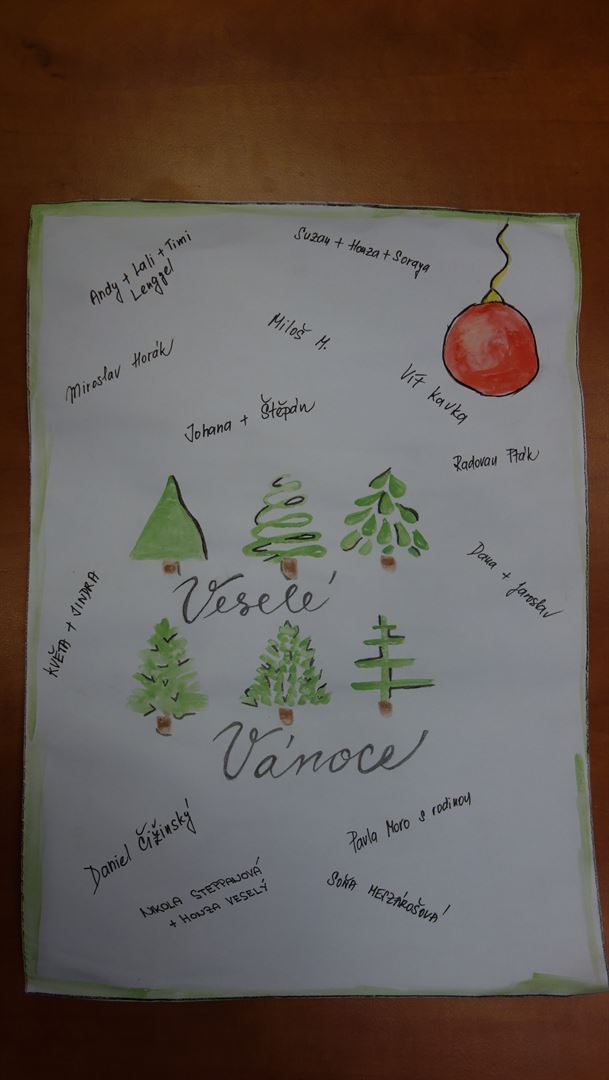 Andy + Lali + Timi
Lenggel
Suzan + Honza + Soraya
Miloš M.
Miroslav Horák
Vít Kavka
Johana + Štěpán
Radovan Pták
Dana + Jaroslav
KVĚTA + JINDRA
Veselé
Vánoce
Daniel Čižinský
Pavla Moro s rodinou
NIKOLA STEPPANOVÁ
+ HONZA VESELÝ
SOŇA MESZÁROŠOVÁ